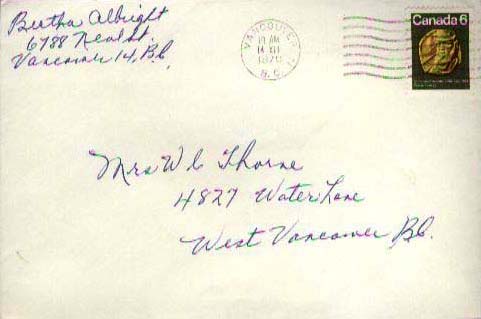 Bertha Albright
6788 Neal St.
Vancouver 14, B.C.
VANCOUVER
11 AM
14 XII
1970
B.C.
Canada 6
Mrs W C Thorne
4827 Water Lane
West Vancouver, B.C.